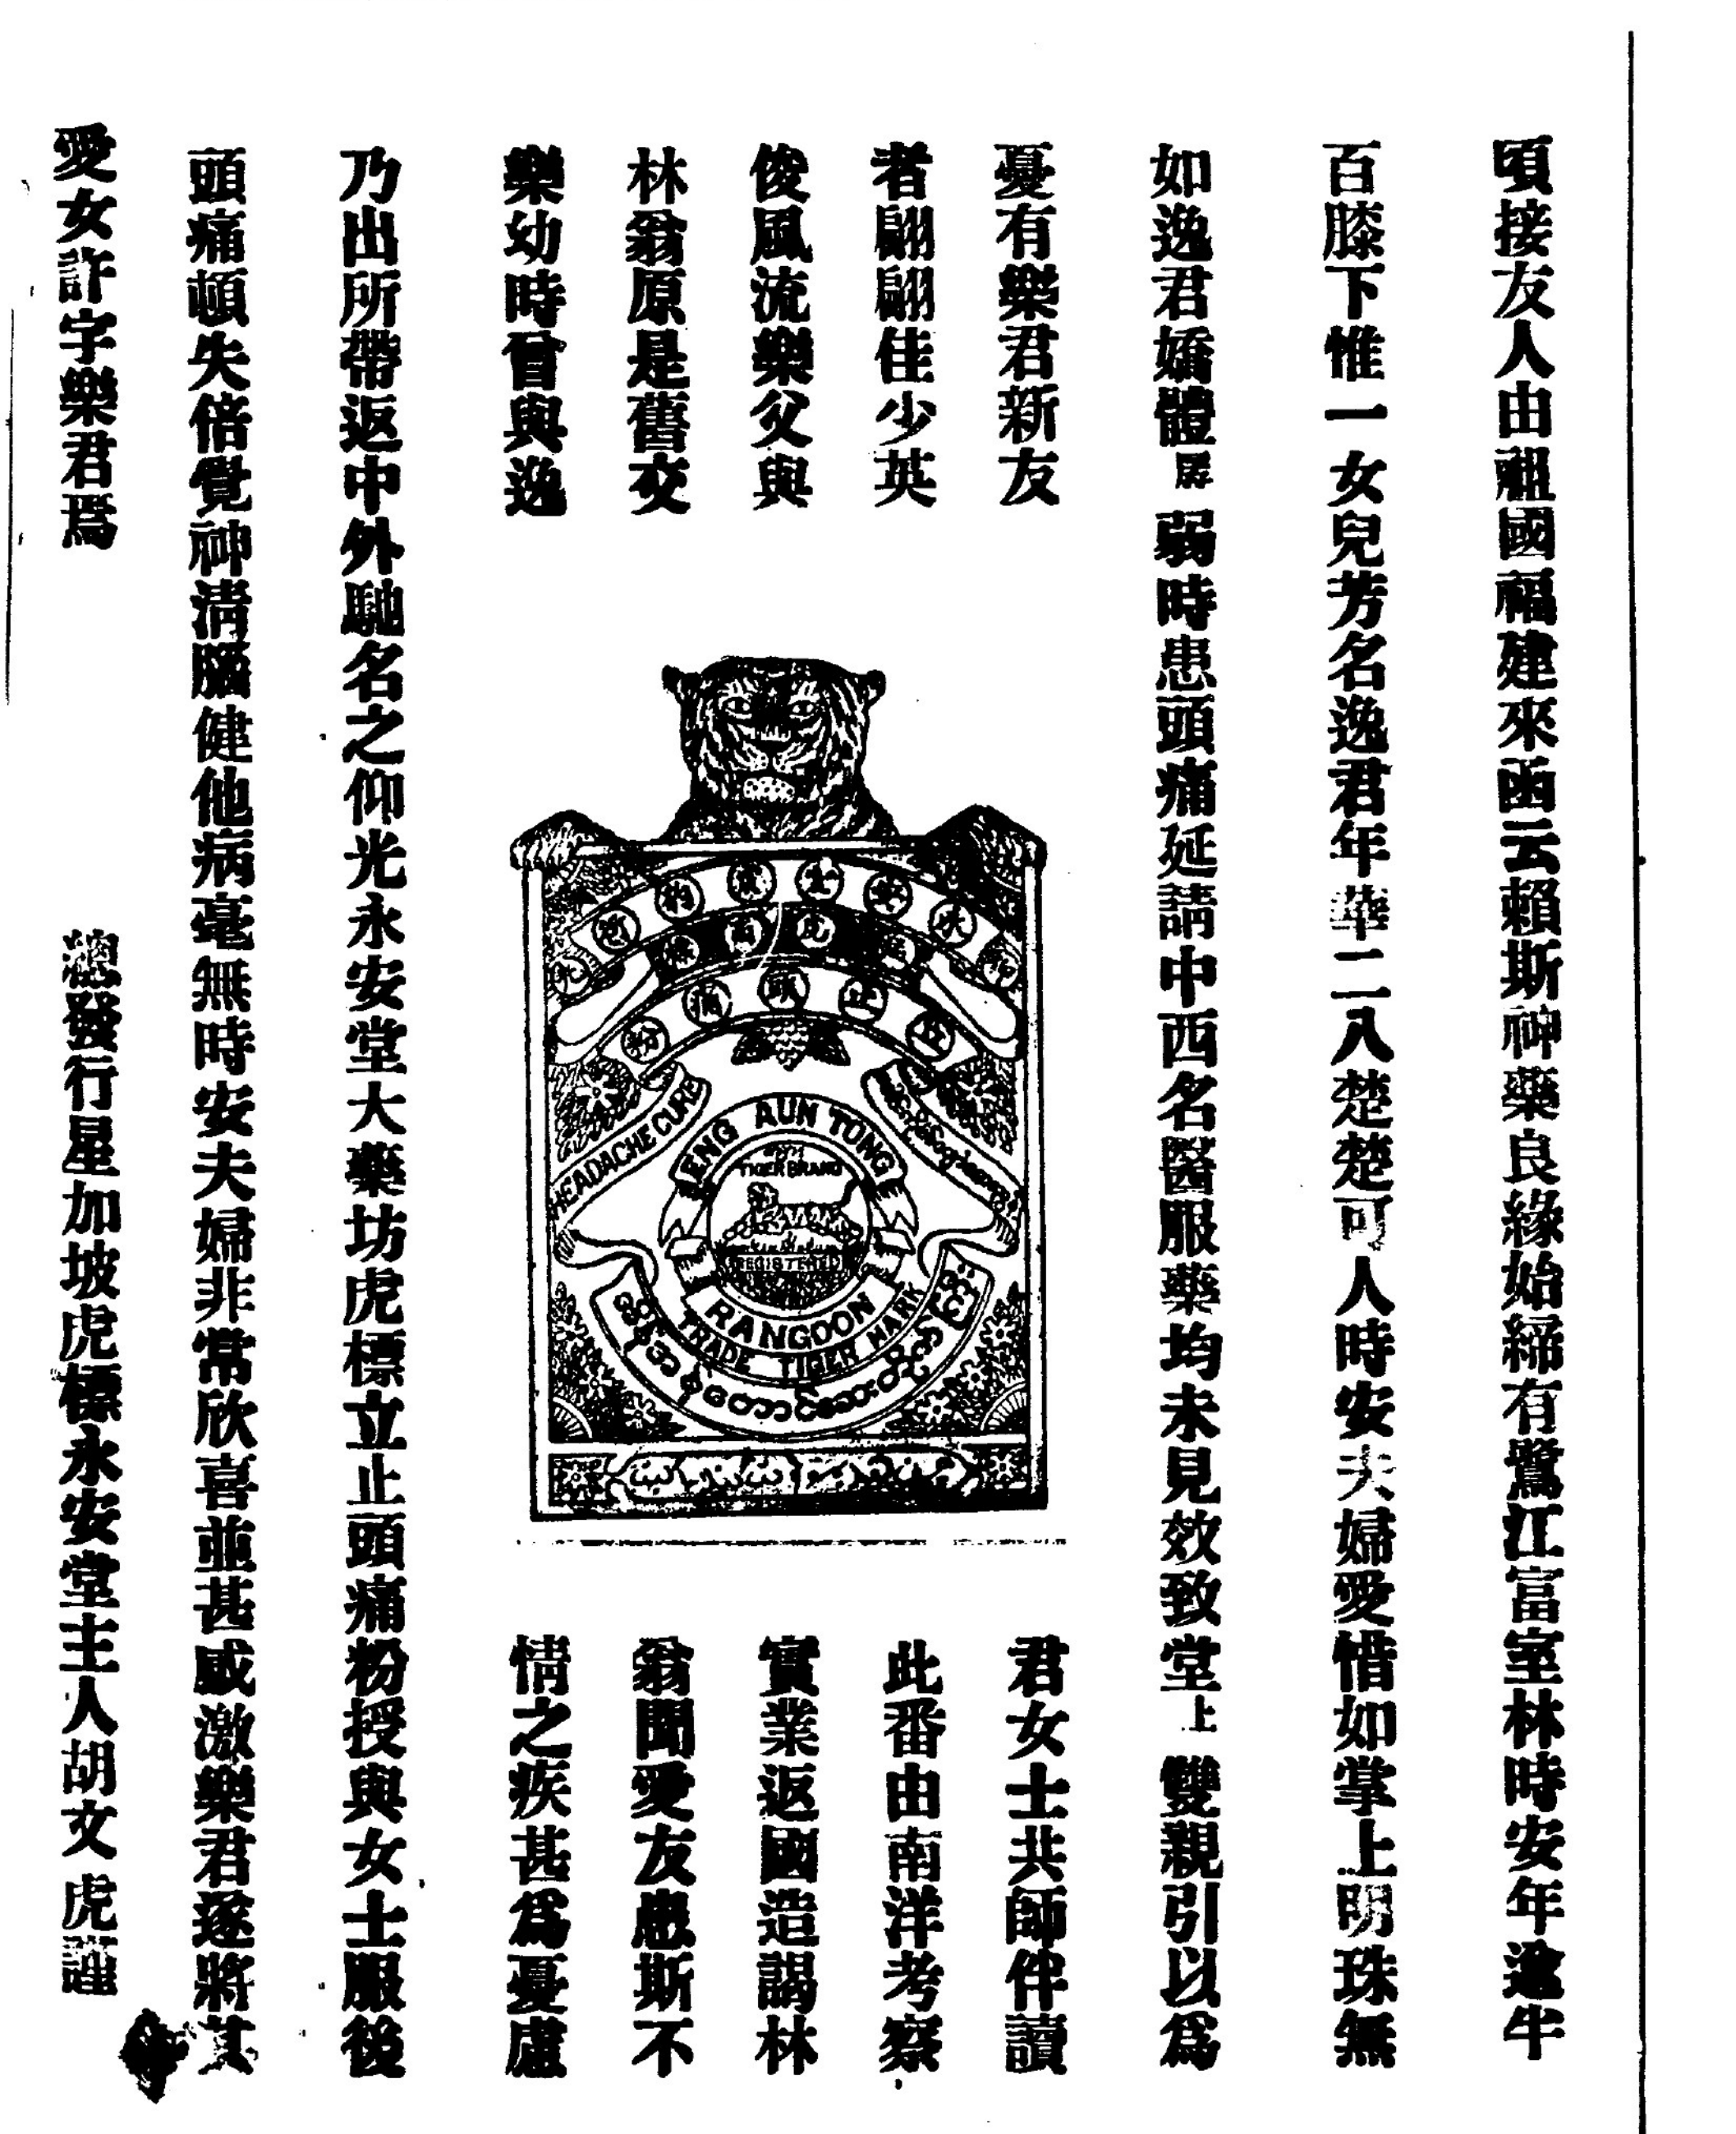 頃接友人由祖國福建來函云賴斯神藥良緣始締有鷺江富室林時安年逾半
百膝下惟一女兒芳名逸君年華二八楚楚可人時安夫婦愛惜如掌上明珠無
如逸君嬌體孱弱時患頭痛延請中西名醫服藥均未見效致堂上雙親引以爲
憂有樂君新友
者翩翩佳少英
俊風流樂父與
林翁原是舊交
樂幼時曾與逸
君女士共師伴讀
此番由南洋考察
實業返國造謁林
翁聞愛友患斯不
情之疾甚爲憂慮
乃出所帶返中外馳名之仰光永安堂大藥坊虎標立止頭痛粉授與女士服後
頭痛頓失倍覺神清腦健他病毫無時安夫婦非常欣喜並甚感激樂君遂將其
愛女許字樂君焉
總發行星加坡虎標永安堂主人胡文虎謹
止頭痛粉
HEADACHE CURE
ENG AUN TONG
TIGER BRAND
REGISTERED
RANGOON
TRADE TIGER MARK